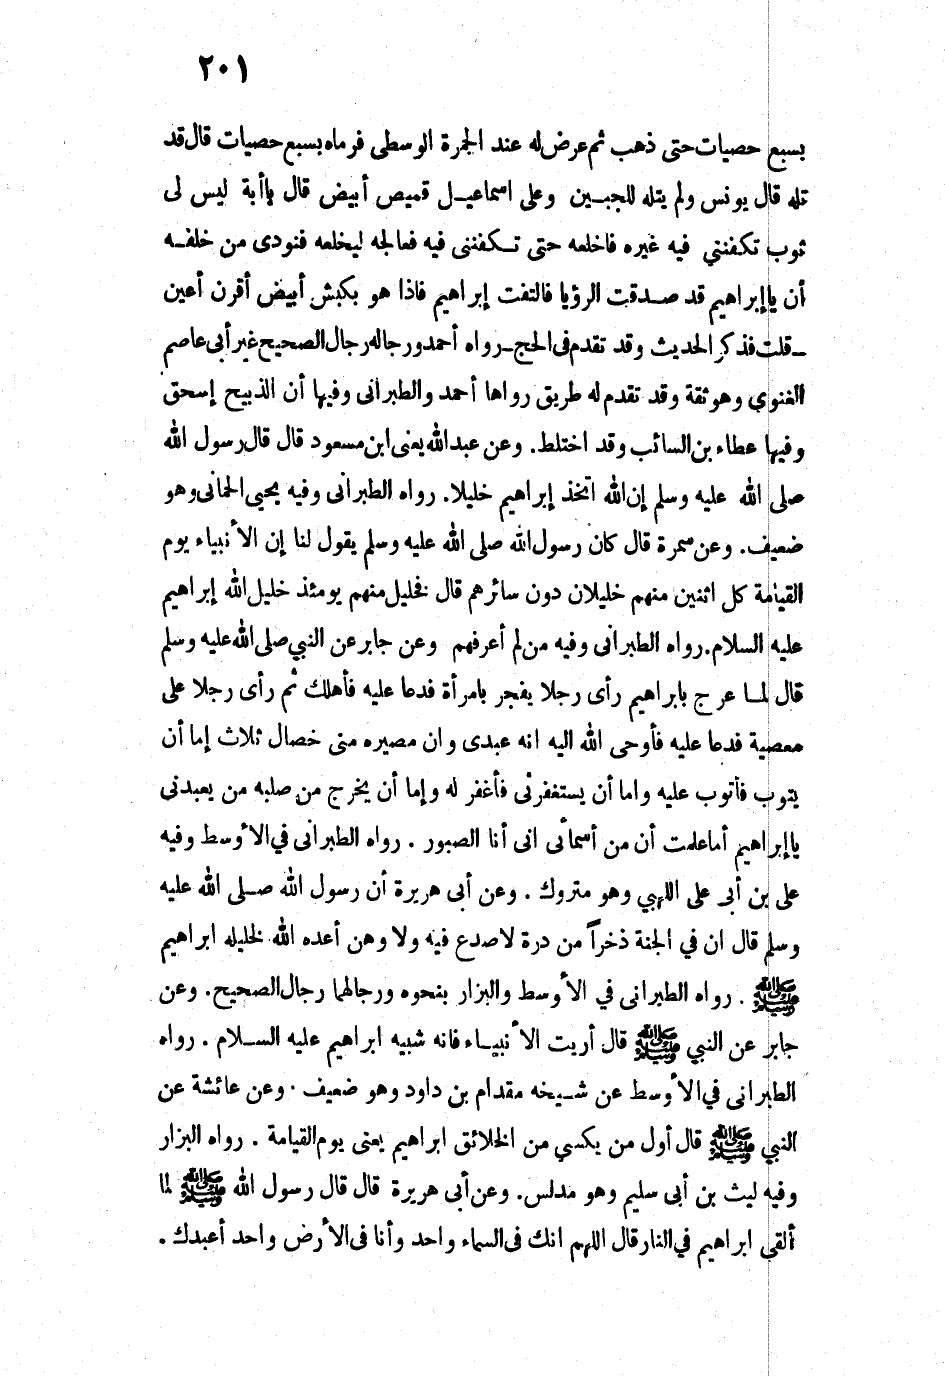 ٢٠١
بسبع حصيات حتى ذهب ثم عرض له عند الجمرة الوسطى فرماه بسبع حصيات قال قد
تله قال يونس ولم يتله للجبـين وعلى اسماعيـل قميص أبيض قال ياأبة ليس لى
ثوب تكفنني فيه غيره فاخلعه حتى تـكفننى فيه فعالجه ليخلعه فنودى من خلفـه
أن ياإبراهيم قد صـدقت الرؤيا فالتفت إبراهيم فاذا هو بكبش أبيض أقرن أعين
ـ قلت فذكر الحديث وقد تقدم فى الحج ـ رواه أحمد ورجاله رجال الصحيح غير أبى عاصم
الغنوي وهو ثقة وقد تقدم له طريق رواها أحمد والطبرانى وفيها أن الذبيح إسحق
وفيها عطاء بن السائب وقد اختلط. وعن عبد الله يعنى ابن مسعود قال قال رسول الله
صلى الله عليه وسلم إن الله اتخذ إبراهيم خليلا. رواه الطبرانى وفيه يحيى الحمانى وهو
ضعيف. وعن سمرة قال كان رسول الله صلى الله عليه وسلم يقول لنا إن الأنبياء يوم
القيامة كل اثنين منهم خليلان دون سائرهم قال فخليل منهم يومئذ خليل الله إبراهيم
عليه السلام. رواه الطبرانى وفيه من لم أعرفهم وعن جابر عن النبي صلى الله عليه وسلم
قال لمـا عرج بابراهيم رأى رجلا يفجر بامرأة فدعا عليه فأهلك ثم رأى رجلا على
معصية فدعا عليه فأوحى الله اليه انه عبدى وان مصيره منى خصال ثلاث إما أن
يتوب فأتوب عليه واما أن يستغفرنى فأغفر له وإما أن يخرج من صلبه من يعبدنى
ياإبراهيم أما علمت أن من أسمائى انى أنا الصبور . رواه الطبرانى في الأوسط وفيه
على بن أبى على اللهبي وهو متروك . وعن أبى هريرة أن رسول الله صـلى الله عليه
وسلم قال ان في الجنة ذخراً من درة لا صدع فيه ولا وهن أعده الله لخليله ابراهيم
ﷺ . رواه الطبرانى في الأوسط والبزار بنحوه ورجالهما رجال الصحيح. وعن
جابر عن النبي ﷺ قال أريت الأنبيـاء فانه شبيه ابراهيم عليه السـلام . رواه
الطبرانى في الأوسط عن شـيخه مقدام بن داود وهو ضعيف . وعن عائشة عن
النبي ﷺ قال أول من يكسي من الخلائق ابراهيم يعنى يوم القيامة . رواه البزار
وفيه ليث بن أبى سليم وهو مدلس. وعن أبى هريرة قال قال رسول الله ﷺ لما
ألقي ابراهيم في النار قال اللهم انك فى السماء واحد وأنا فى الأرض واحد أعبدك .